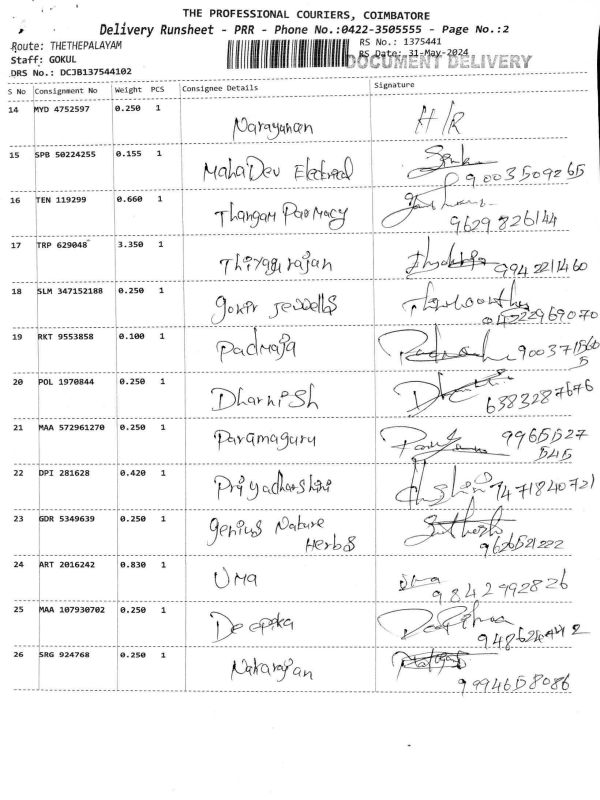 THE PROFESSIONAL COURIERS, COIMBATORE
Delivery Runsheet - PRR - Phone No.:0422-3505555 - Page No.:2
Route: THETHEPALAYAM RS No.: 1375441
Staff: GOKUL RS Date: 31-May-2024
DOCUMENT DELIVERY
DRS No.: DCJB137544102
S No Consignment No Weight PCS Consignee Details Signature
14 MYD 4752597 0.250 1 Narayanan H/R
15 SPB 50224255 0.155 1 MahaDev Electrical
9003509265
16 TEN 119299 0.660 1 Thangam Parmacy
9629826144
17 TRP 629048 3.350 1 Thiyagurajan 9942221460
18 SLM 347152188 0.250 1 gokir Jewells
04222969070
19 RKT 9553858 0.100 1 Padmaja
20 POL 1970844 0.250 1 DharniSh
6383287676
21 MAA 572961270 0.250 1 Paramaguru 9965527
545
22 DPI 281628 0.420 1 Priyadharshini 9471840721
23 GDR 5349639 0.250 1 Genius Nature
Herbs
9626521222
24 ART 2016242 0.830 1 Uma Uma
9842992826
25 MAA 107930702 0.250 1 Deepika
26 SRG 924768 0.250 1
9994658086